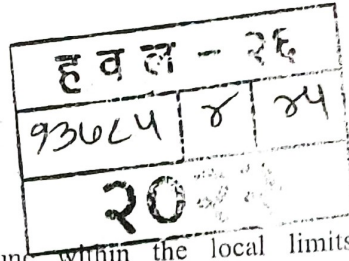 हवल - २६
१३७८५ ४ ४५
२०
within the local limits